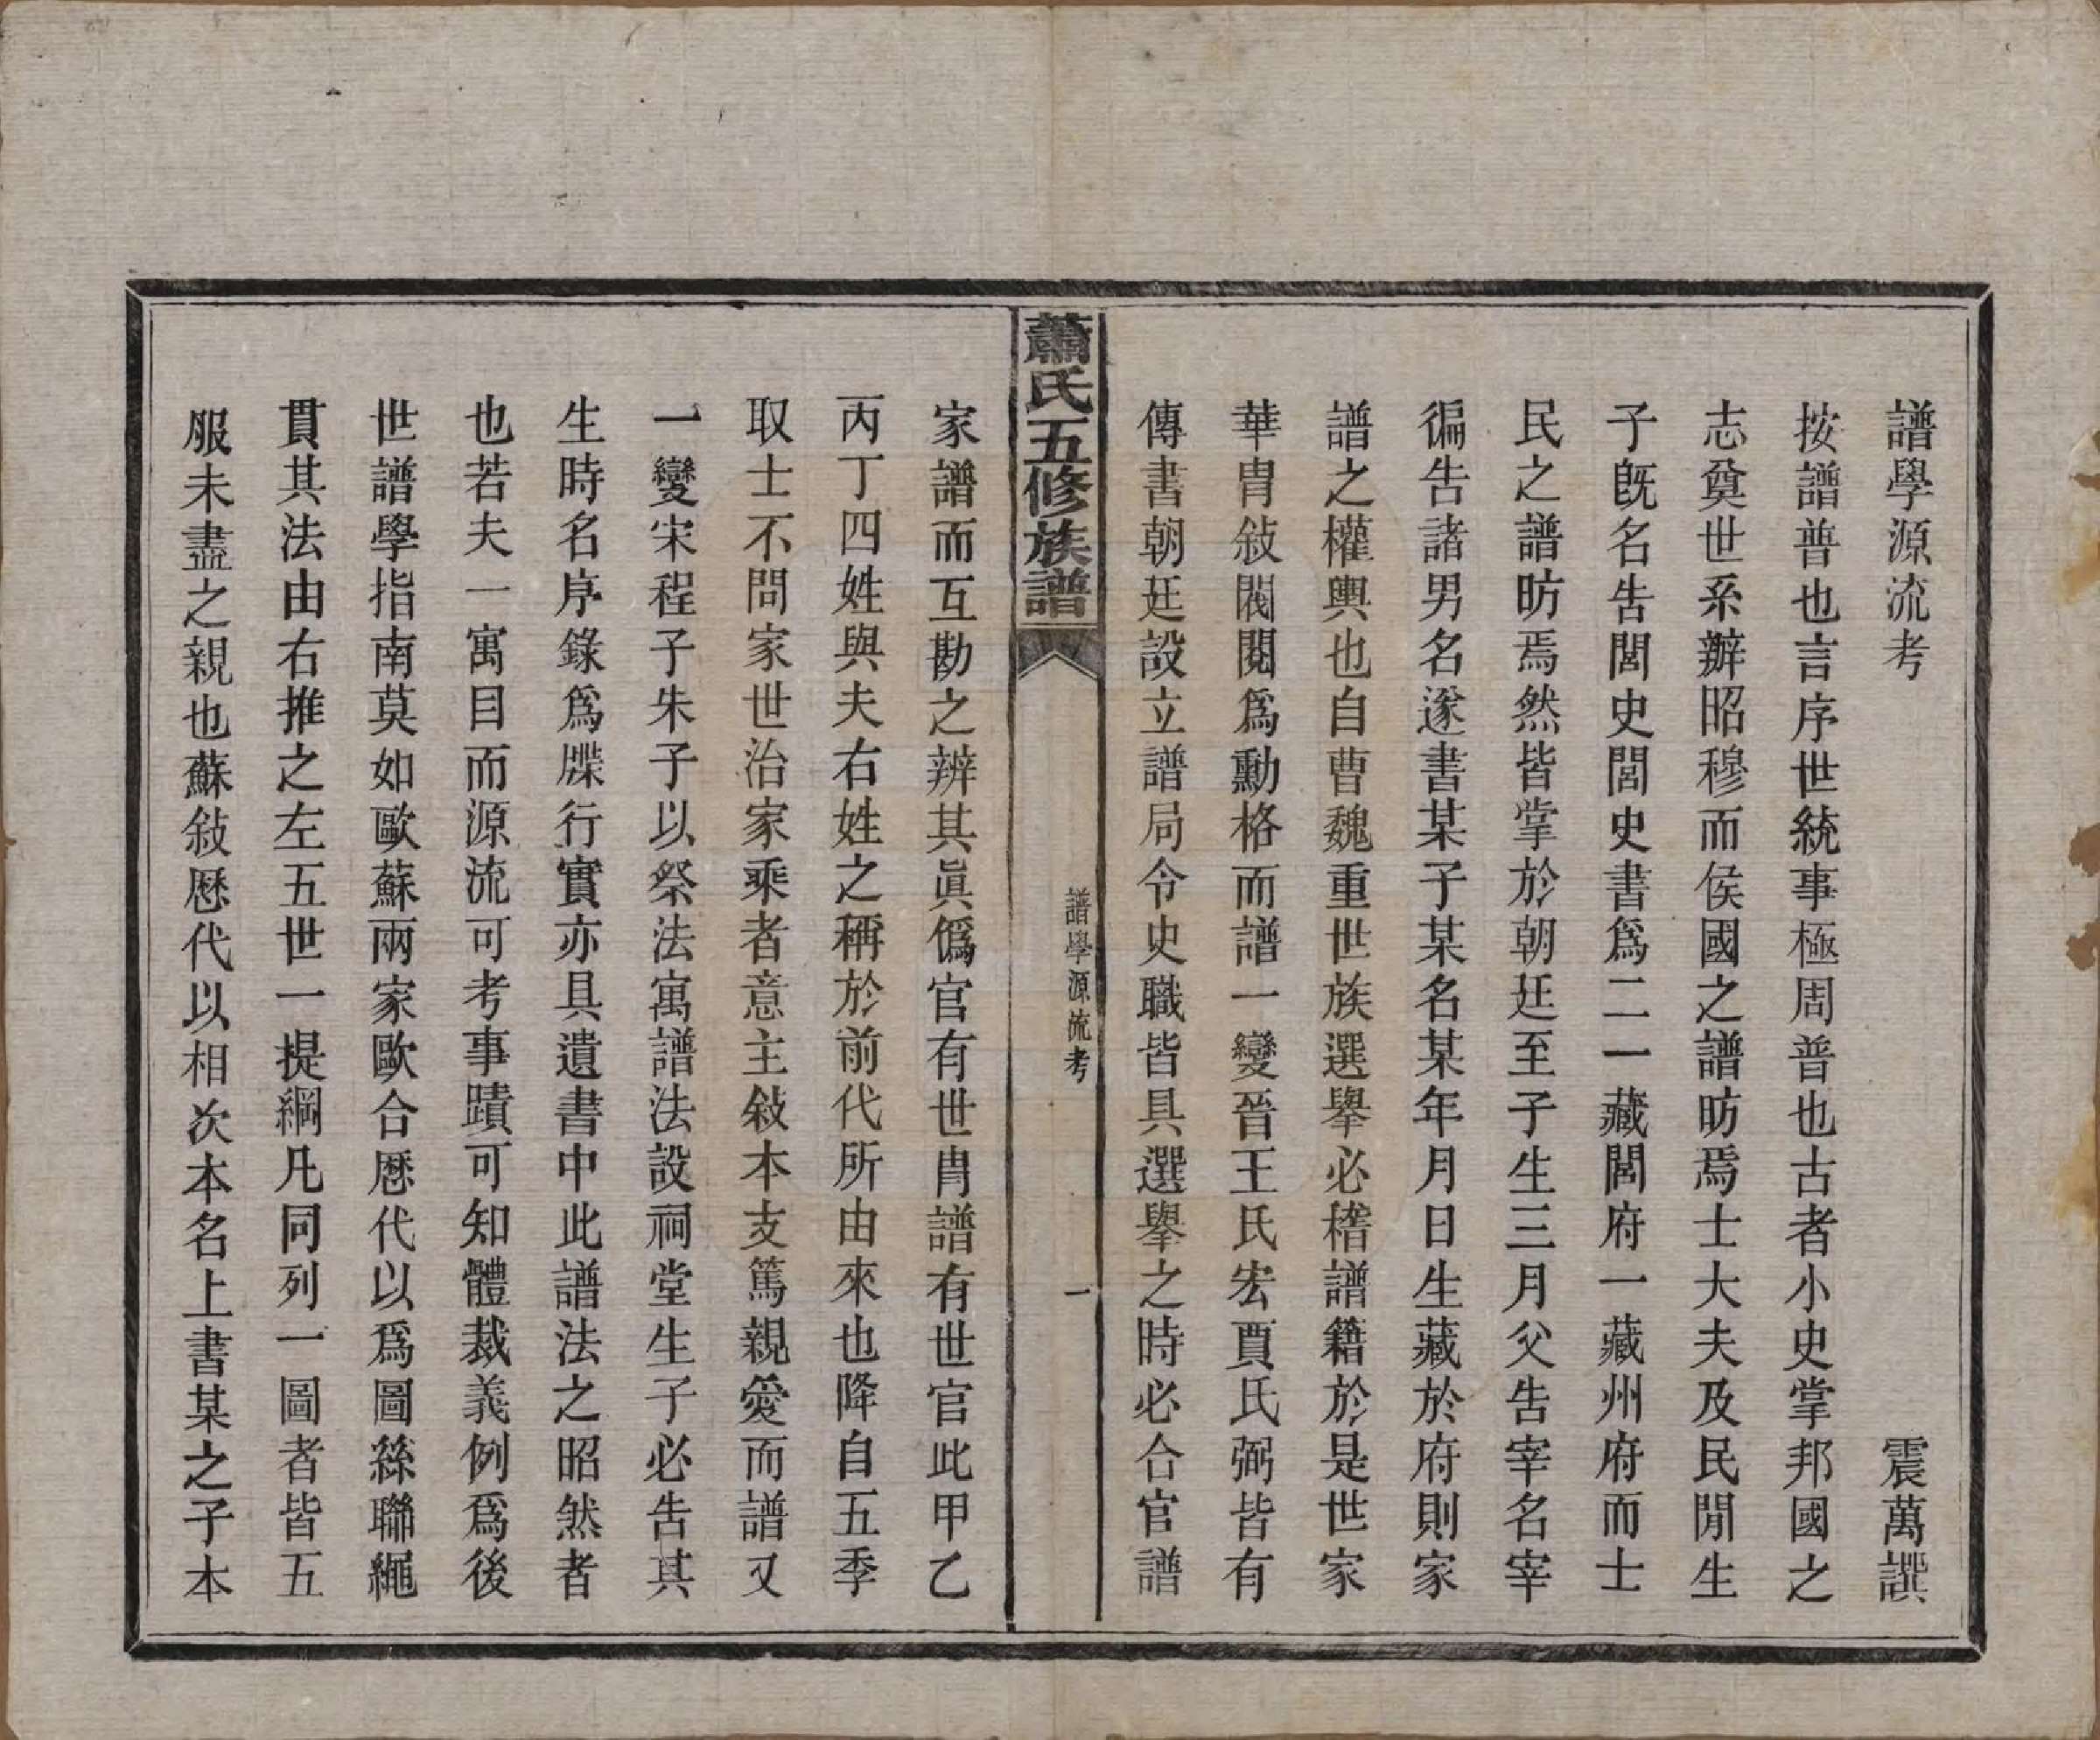 譜學源流考　震萬譔
按譜普也言序世統事極周普也古者小史掌邦國之
志奠世系辦昭穆而侯國之譜昉焉士大夫及民閒生
子旣名告閭史閭史書爲二一藏閭府一藏州府而士
民之譜昉焉然皆掌於朝廷至子生三月父告宰名宰
徧告諸男名遂書某子某名某年月日生藏於府則家
譜之權輿也自曹魏重世族選擧必稽譜籍於是世家
華胄敍閥閱爲勳格而譜一變晉王氏宏賈氏弼皆有
傳書朝廷設立譜局令史職皆具選擧之時必合官譜
蕭氏五修族譜
譜學源流考
一
家譜而互勘之辨其眞僞官有世胄譜有世官此甲乙
丙丁四姓與夫右姓之稱於前代所由來也降自五季
取士不問家世治家乘者意主敍本支篤親愛而譜又
一變宋程子朱子以祭法寓譜法設祠堂生子必告其
生時名序錄爲牒行實亦具遺書中此譜法之昭然者
也若夫一寓目而源流可考事蹟可知體裁義例爲後
世譜學指南莫如歐蘇兩家歐合歷代以爲圖絲聯繩
貫其法由右推之左五世一提綱凡同列一圖者皆五
服未盡之親也蘇敍歷代以相次本名上書某之子本